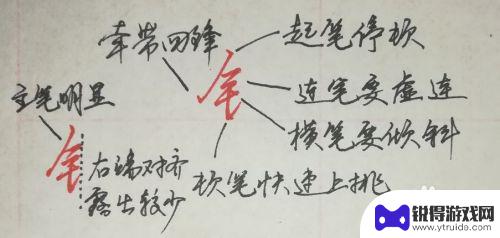 牵带回锋
起笔停顿
连笔要虚连
横笔要倾斜
顿笔快速上挑
主笔明显
右端对齐
露出较少
锐得游戏网
www.ytruida.com